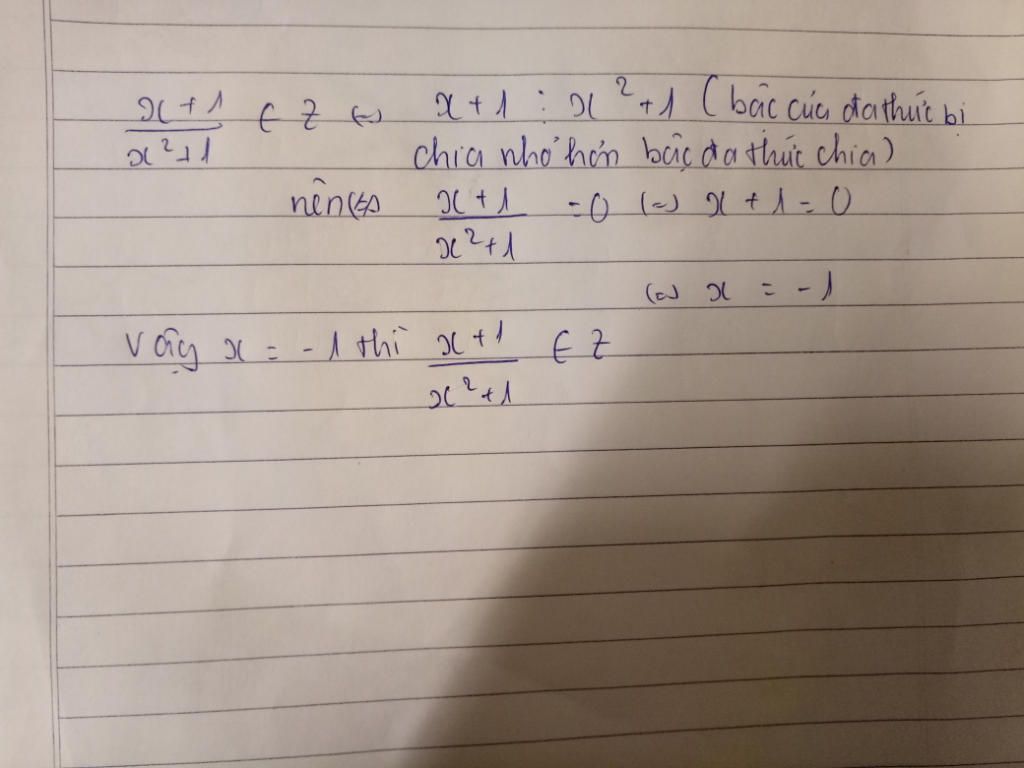 x + 1 / x² + 1 ∈ Z ⇔ x + 1 ⋮ x² + 1 ( bậc của đa thức bị
chia nhỏ hơn bậc đa thức chia)
nên ⇔ x + 1 / x² + 1 = 0 ⇔ x + 1 = 0
⇔ x = - 1
Vậy x = - 1 thì x + 1 / x² + 1 ∈ Z